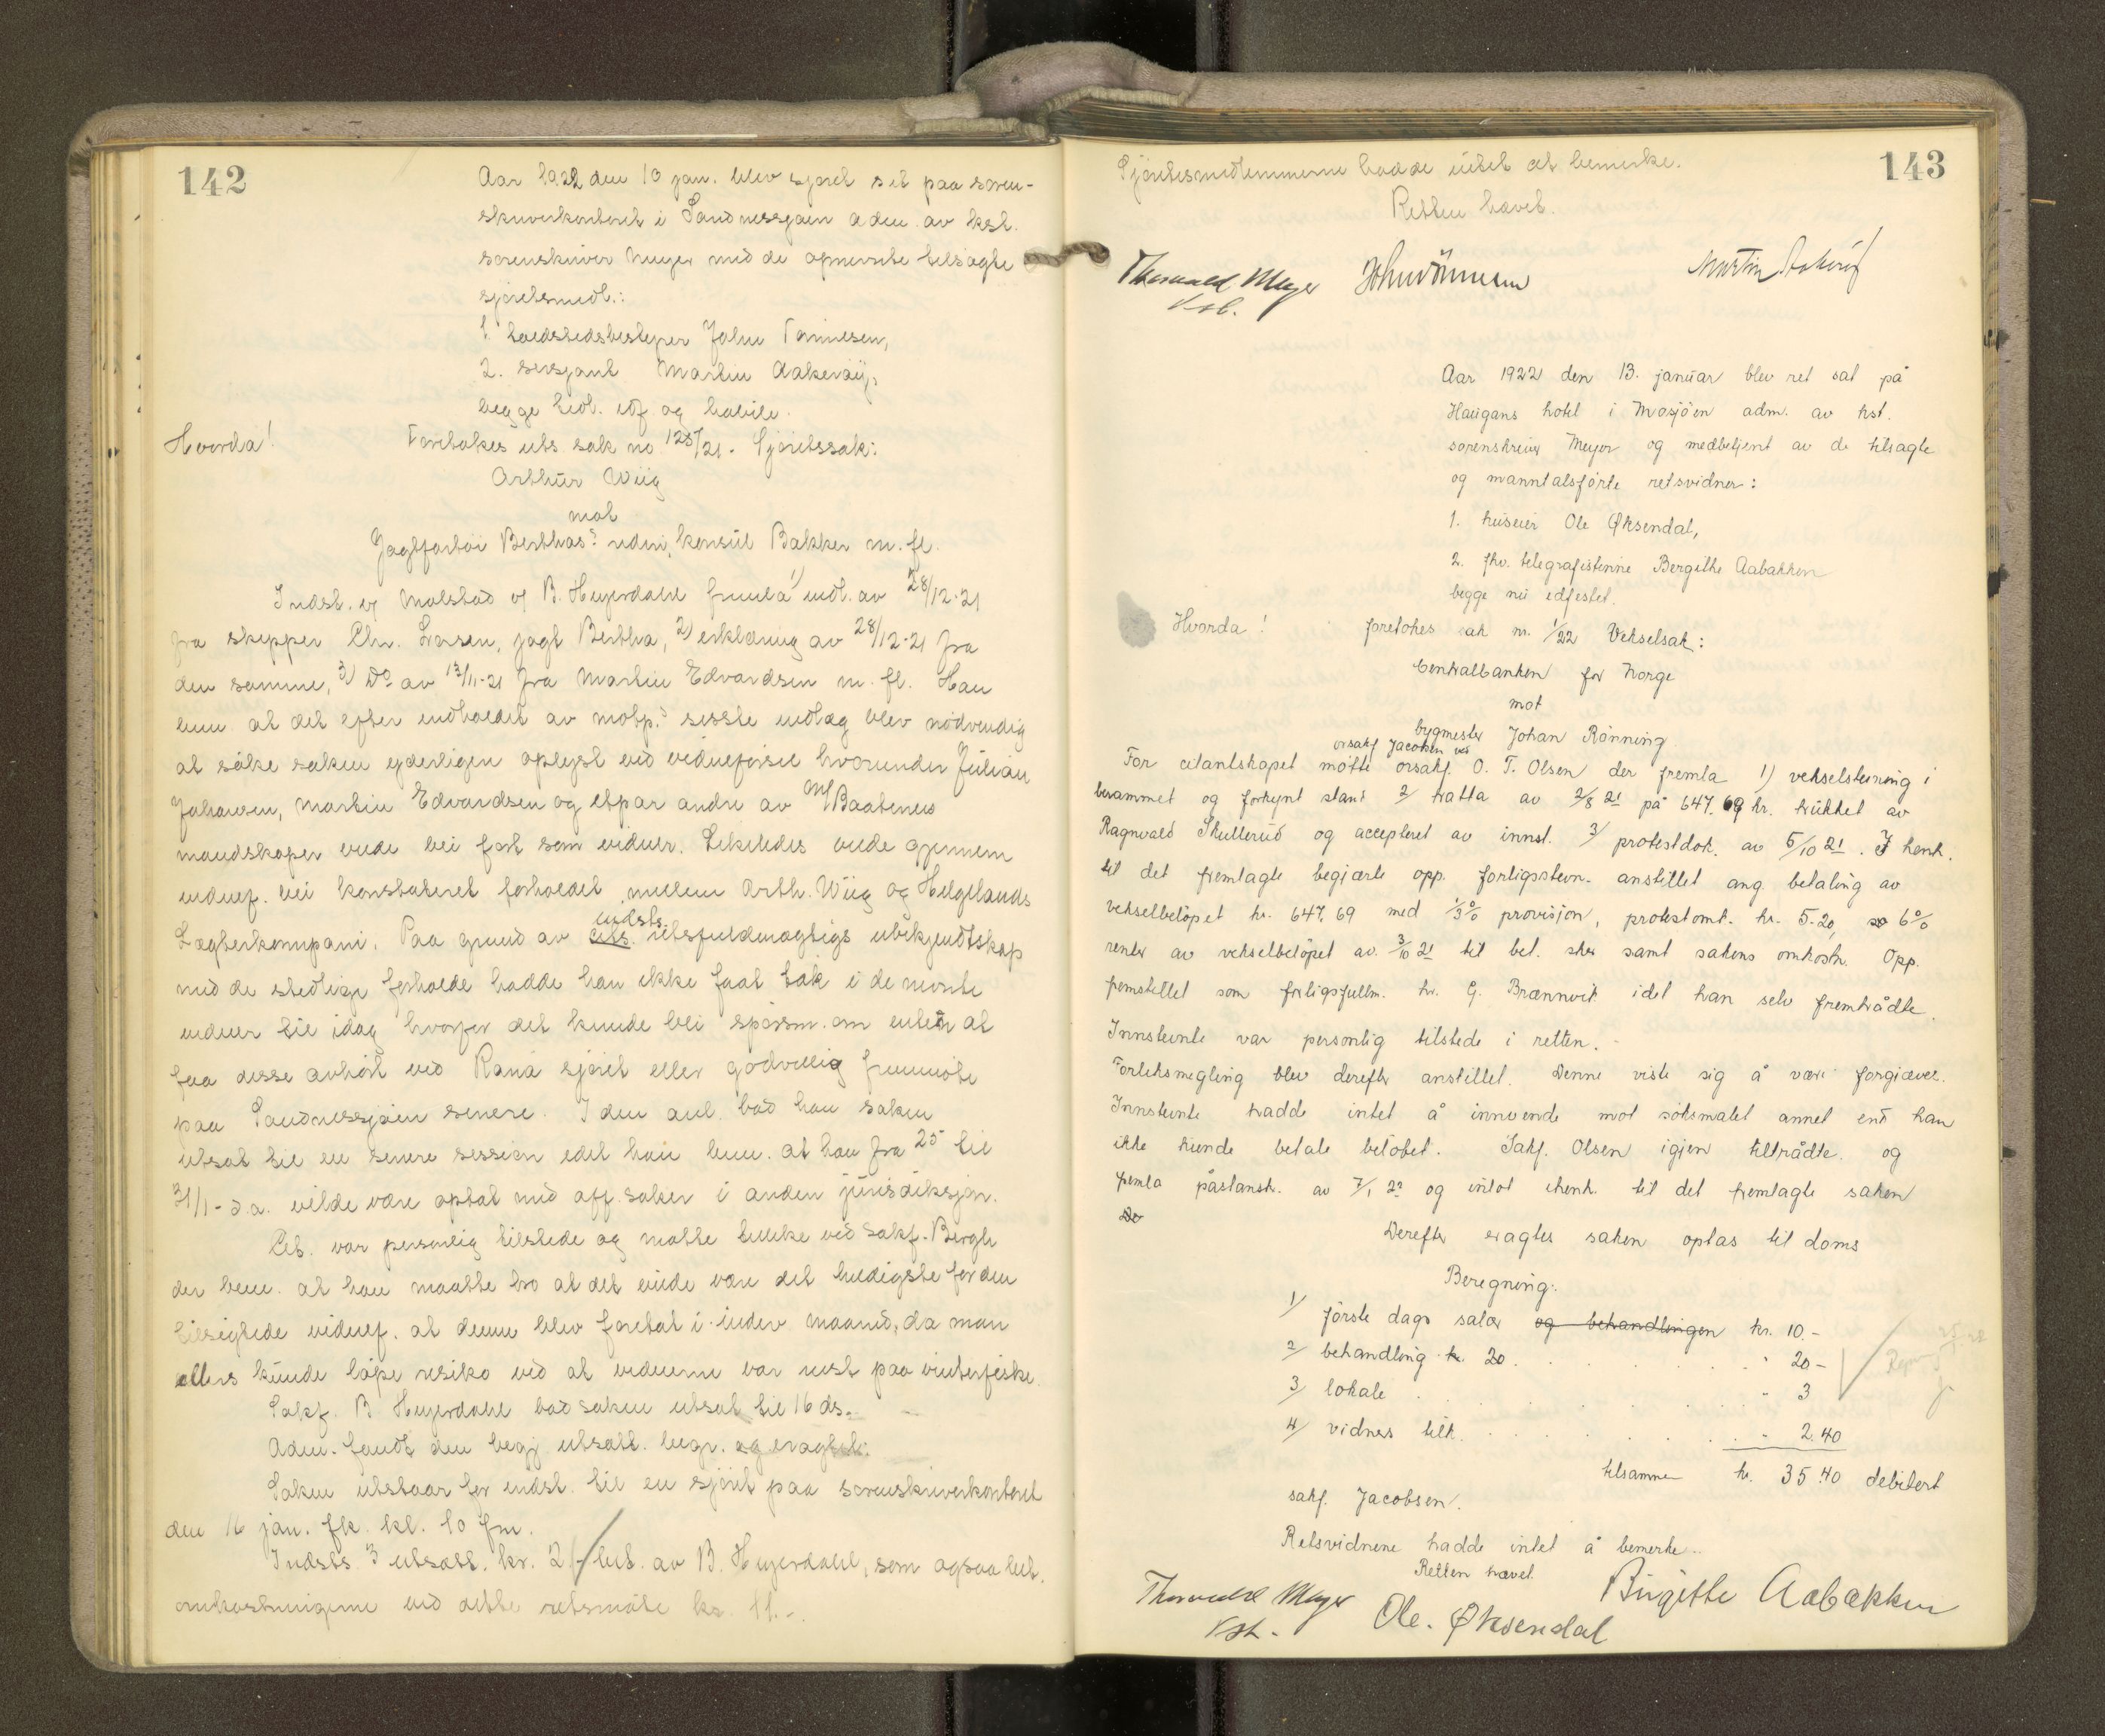 142
Aar 1922 den 10 jan. blev sjøret sat paa soren-
skriverkontoret i Sandnessjøen adm. av kst.
sorenskriver Meyer med de opnevnte tilsagte
sjøretsmedl.:
1. Tønnesen,
2. sersjant Martin Aakerøy,
begge tidl. edf. og habile.
Hvorda!
Foretokes uts. sak no 125/21. Sjøretssak:
Arthur Wiig
mot
Jagtfartøi Berthas rederi, konsul Bakker m. fl.
Indst. v/ Molstad v/ B. Heyerdahl fremla 1) indl. av 28/12-21
fra skipper Chr. Larsen, jagt Bertha, 2) erklæring av 28/12-21 fra
den samme, 3) Do av 13/11-21 fra Martin Edvardsen m. fl. Han
bem. at det efter indholdet av motp.s sisste indlæg blev nødvendig
at søke saken yderligere oplyst ved vidneførsel hvorunder Julian
Johansen, Martin Edvardsen og etpar andre av M/ Baatenes
mandskaper vilde bli ført som vidner. Likeledes vilde gjennem
vidnef. bli konstateret forholdet mellem Arth. Wiig og Helgelands
Lægterkompani. Paa grund av cits. indsts. utsfuldmægtigs ubekjendtskap
med de stedlige forholde hadde han ikke faat tak i de nevnte
vidner til idag hvorfor det kunde bli spørsm. om enten at
faa disse avhørt ved Rana sjøret eller godvillig fremmøte
paa Sandnessjøen senere. I den anl. bad han saken
utsat til en senere session idet han bem. at han fra 25 til
31/1- d.a. vilde være optat med off. saker i anden jurisdiksjon.
Cit. var personlig tilstede og møtte tillike ved sakf. Bergh
der bem. at han maatte tro at det vilde være det heldigste for den
tilsigtede vidnef. at denne blev foretat i inden maaned, da man
ellers kunde løpe risiko ved at vidnerne var reist paa vinterfiske.
Sakf. B. Heyerdahl bad saken utsat til 16 ds.
Adm. fandt den begj. utsætt. begr. og eragtet:
Saken utstaar for indst. til en sjøret paa sorenskriverkontoret
den 16 jan. fk. kl. 10 fm.
Indsts 3 utsætt. kr. 2,- bet. av B. Heyerdahl, som ogsaa bet.
omkostningerne ved dette retsmøte kr. 11.-.
143
Sjøretsmedlemmerne hadde intet at bemerke.
Retten hævet.
Thorvald Meyer
kst.
Aar 1922 den 13. januar blev ret sat på
Haugans hotel i Mosjöen adm. av kst.
sorenskriver Meyer og medbetjent av de tilsagte
og manntalsförte retsvidner:
1. huseier Ole Øksendal,
2. fhv. telegrafistinne Bergithe Aabakken
begge nu edfestet.
Hvorda!
foretokes sak nr. 1/22 Vekselsak:
Centralbanken for Norge
mot
bygmester Johan Rönning
orsakf. Jacobsen ved
For citantskapet mötte orsakf. O. T. Olsen der fremla 1) vekselstevning i
berammet og forkynt stand 2/ tratta av 2/8 21 på 647.69 kr. trukket av
Ragnvald Skullerud og accepteret av innst. 3/ protestdok. av 5/10 21. I henh.
til det fremlagte begjærte opp. forligsstevn. anstillet ang. betaling av
vekselbelöpet kr. 647.69 med 1/3% provisjon, protestomk. kr. 5.20, 6%
renter av vekselbelöpet av 3/10 21 til bet. sker samt sakens omkostn. Opp.
fremstillet som forligsfullm. hr. G. Brænnvik idet han selv fremtrådte.
Innstevnte var personlig tilstede i retten.
Forliksmegling blev derefter anstillet. Denne viste sig å være forgiæves.
Innstevnte hadde intet å innvende mot söksmålet annet end han
ikke kunde betale belöbet. Sakf. Olsen igjen tiltrådte og
fremla påstansk. av 7/1 22 og intok i henh. til det fremlagte saken
De
Derefter eragtes saken optas til doms
Beregning:
1/ förste dags salær og behandlingen kr. 10.-
2/ behandling kr. 20 . . . " 20-
3/ lokale . . . " 3
4/ vidners tilk. . . . " 2.40
tilsammen kr. 35.40 debitert
sakf. Jacobsen.
Retsvidnene hadde intet å bemerke.
Retten hævet.
Thorvald Meyer
kst.
Ole. Øksendal
Birgitte Aabakken